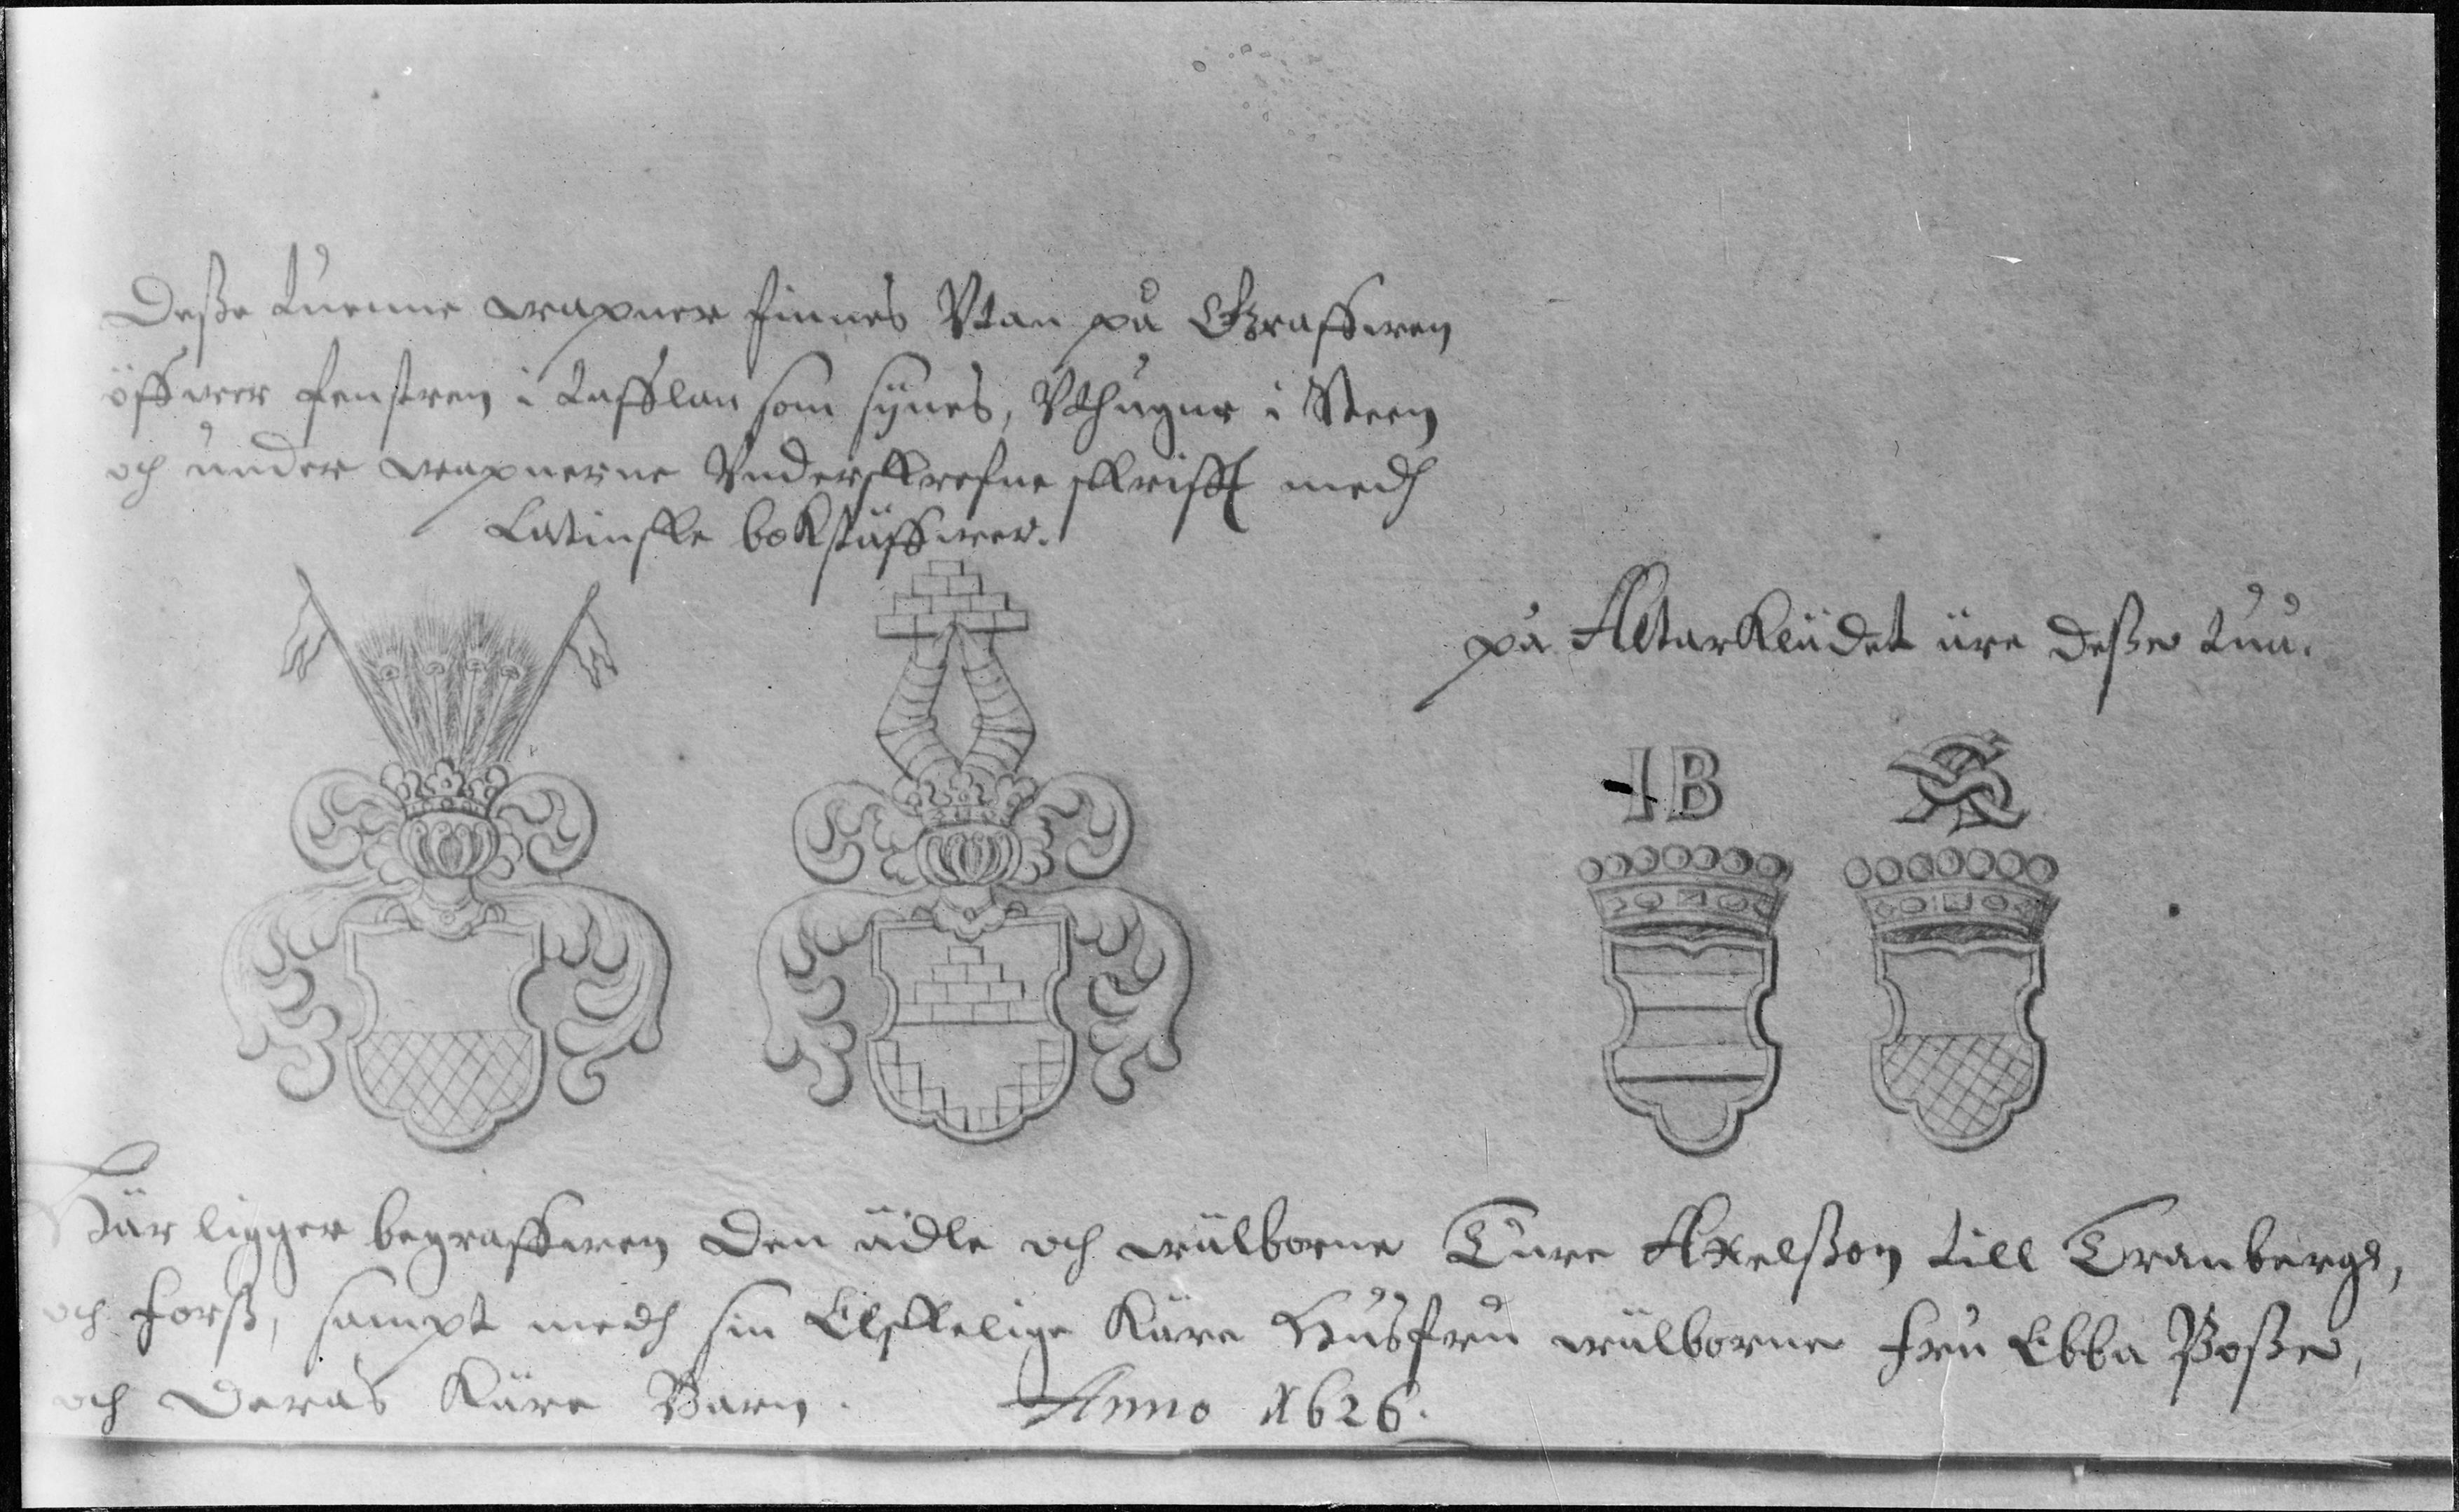 Deße tuenne wapner finnes Vtan på Graffwen
öffwer fenstren i tafflan som sÿnes, Vthugne i Steen
och under wapnerne Underskrefne skrifft medh
Latinske bokstäffwer.
på Altarklädet äre deße tuå.
IB
Här ligger begraffwen Den ädle och wälborne Ture Axelßon till Tranbergh,
och Forß, sampt medh sin Elskelige Käre Husfru wälborne Fru Ebba Poße,
och Deras Käre Barn. Anno 1626.